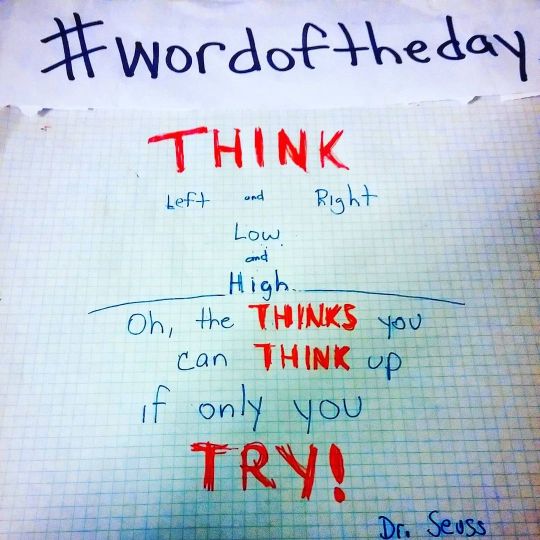 #wordoftheday
THINK
Left and Right
Low
and
High
Oh, the THINKS you
can THINK up
if only you
TRY!
Dr. Seuss